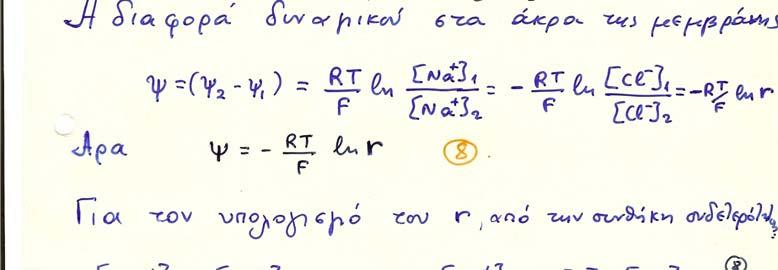 Η διαφορά δυναμικού στα άκρα της μεμβράνης
Ψ = (Ψ₂ - Ψ₁) = RT/F ln [Na⁺]₁/[Na⁺]₂ = - RT/F ln [Cl⁻]₁/[Cl⁻]₂ = - RT/F ln r
Αρα Ψ = - RT/F ln r (8).
Για τον υπολογισμό του r, από την συνθήκη
(8)